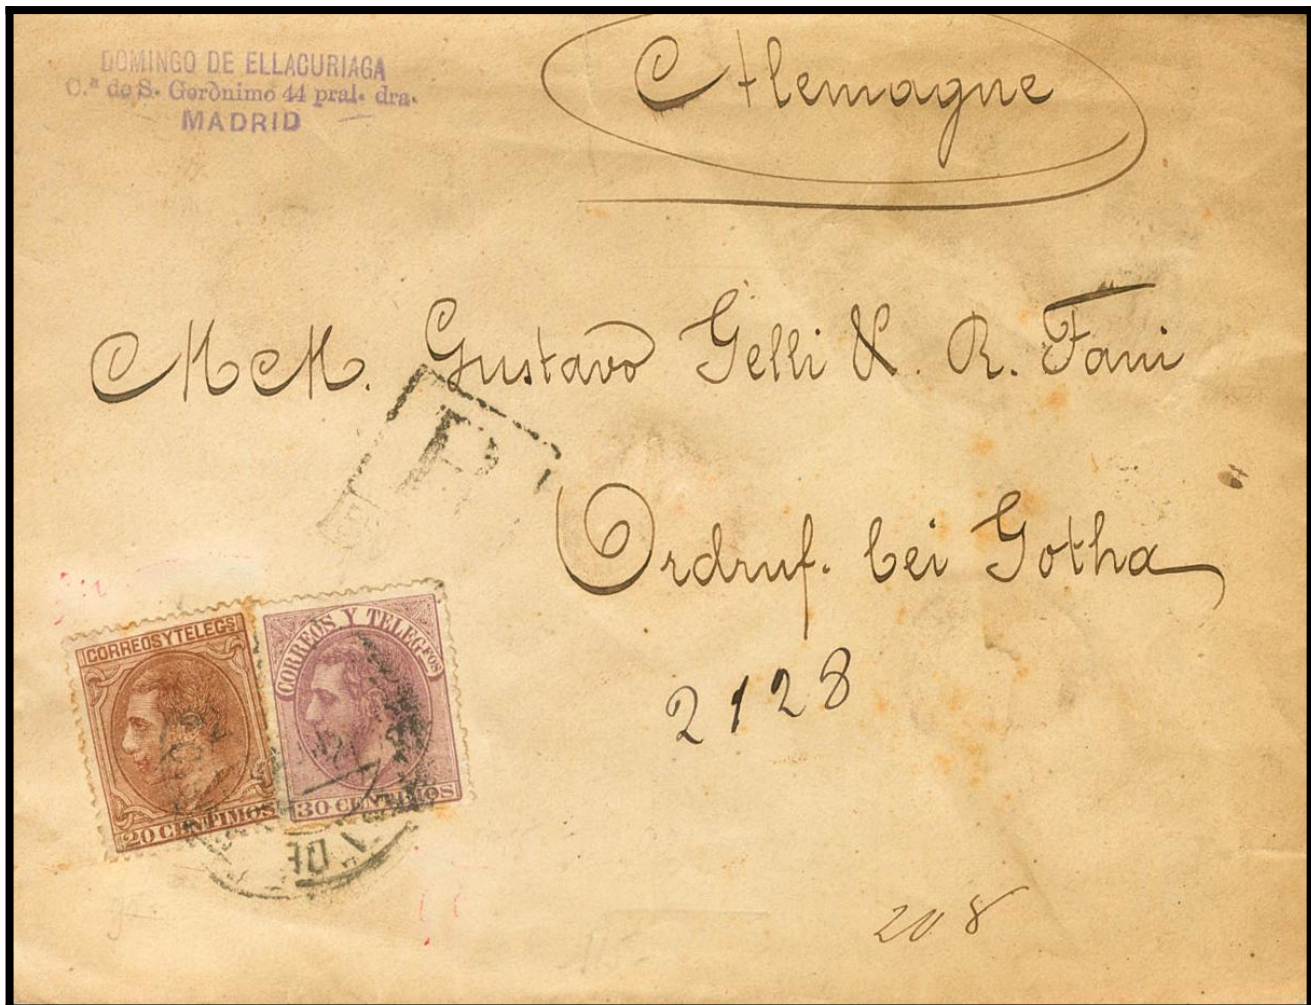 DOMINGO DE ELLACURIAGA
C.ª de S. Gerònimo 44 pral. dra.
MADRID
Allemagne
MM. Gustavo Gelli & R. Fani
R
Ordruf. bei Gotha
2128
CORREOS Y TELEGS
20 CENTIMOS
CORREOS Y TELEGFOS
30 CENTIMOS
DE
208